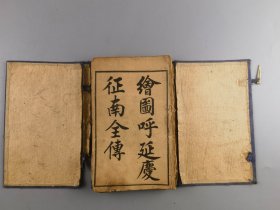 繪圖呼延慶
征南全傳